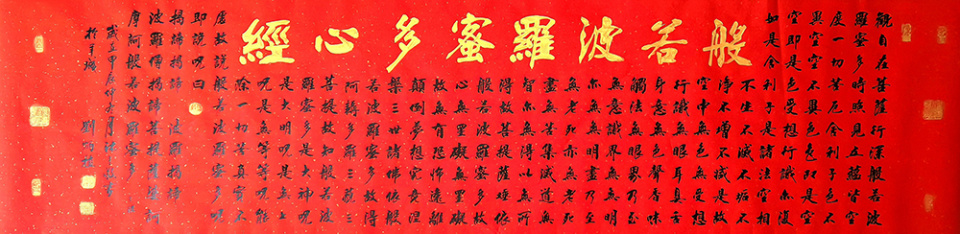 般若波羅蜜多心經
觀自在菩薩行深般若波
羅蜜多時照見五蘊皆空
度一切苦厄舍利子色不
異空空不異色色即是空
空即是色受想行識亦復
如是舍利子是諸法空相
不生不滅不垢不
淨不增不減是故
空中無色無受想
行識無眼耳鼻舌
身意無色聲香味
觸法無眼界乃至
無意識界無無明
亦無無明盡乃至
無老死亦無老死
盡無苦集滅道無
智亦無得以無所
得故菩提薩埵依
般若波羅蜜多故
心無罣礙無罣礙
故無有恐怖遠離
顛倒夢想究竟涅
槃三世諸佛依般
若波羅蜜多故得
阿耨多羅三藐三
菩提故知般若波
羅蜜多是大神咒
是大明咒是無上
咒是無等等咒能
除一切苦真實不
虛故說般若波羅蜜多咒
即說咒曰
揭諦揭諦 波羅揭諦
波羅僧揭諦菩提薩婆訶
摩訶般若波羅蜜多
歲在甲辰仲
於羊城 劉